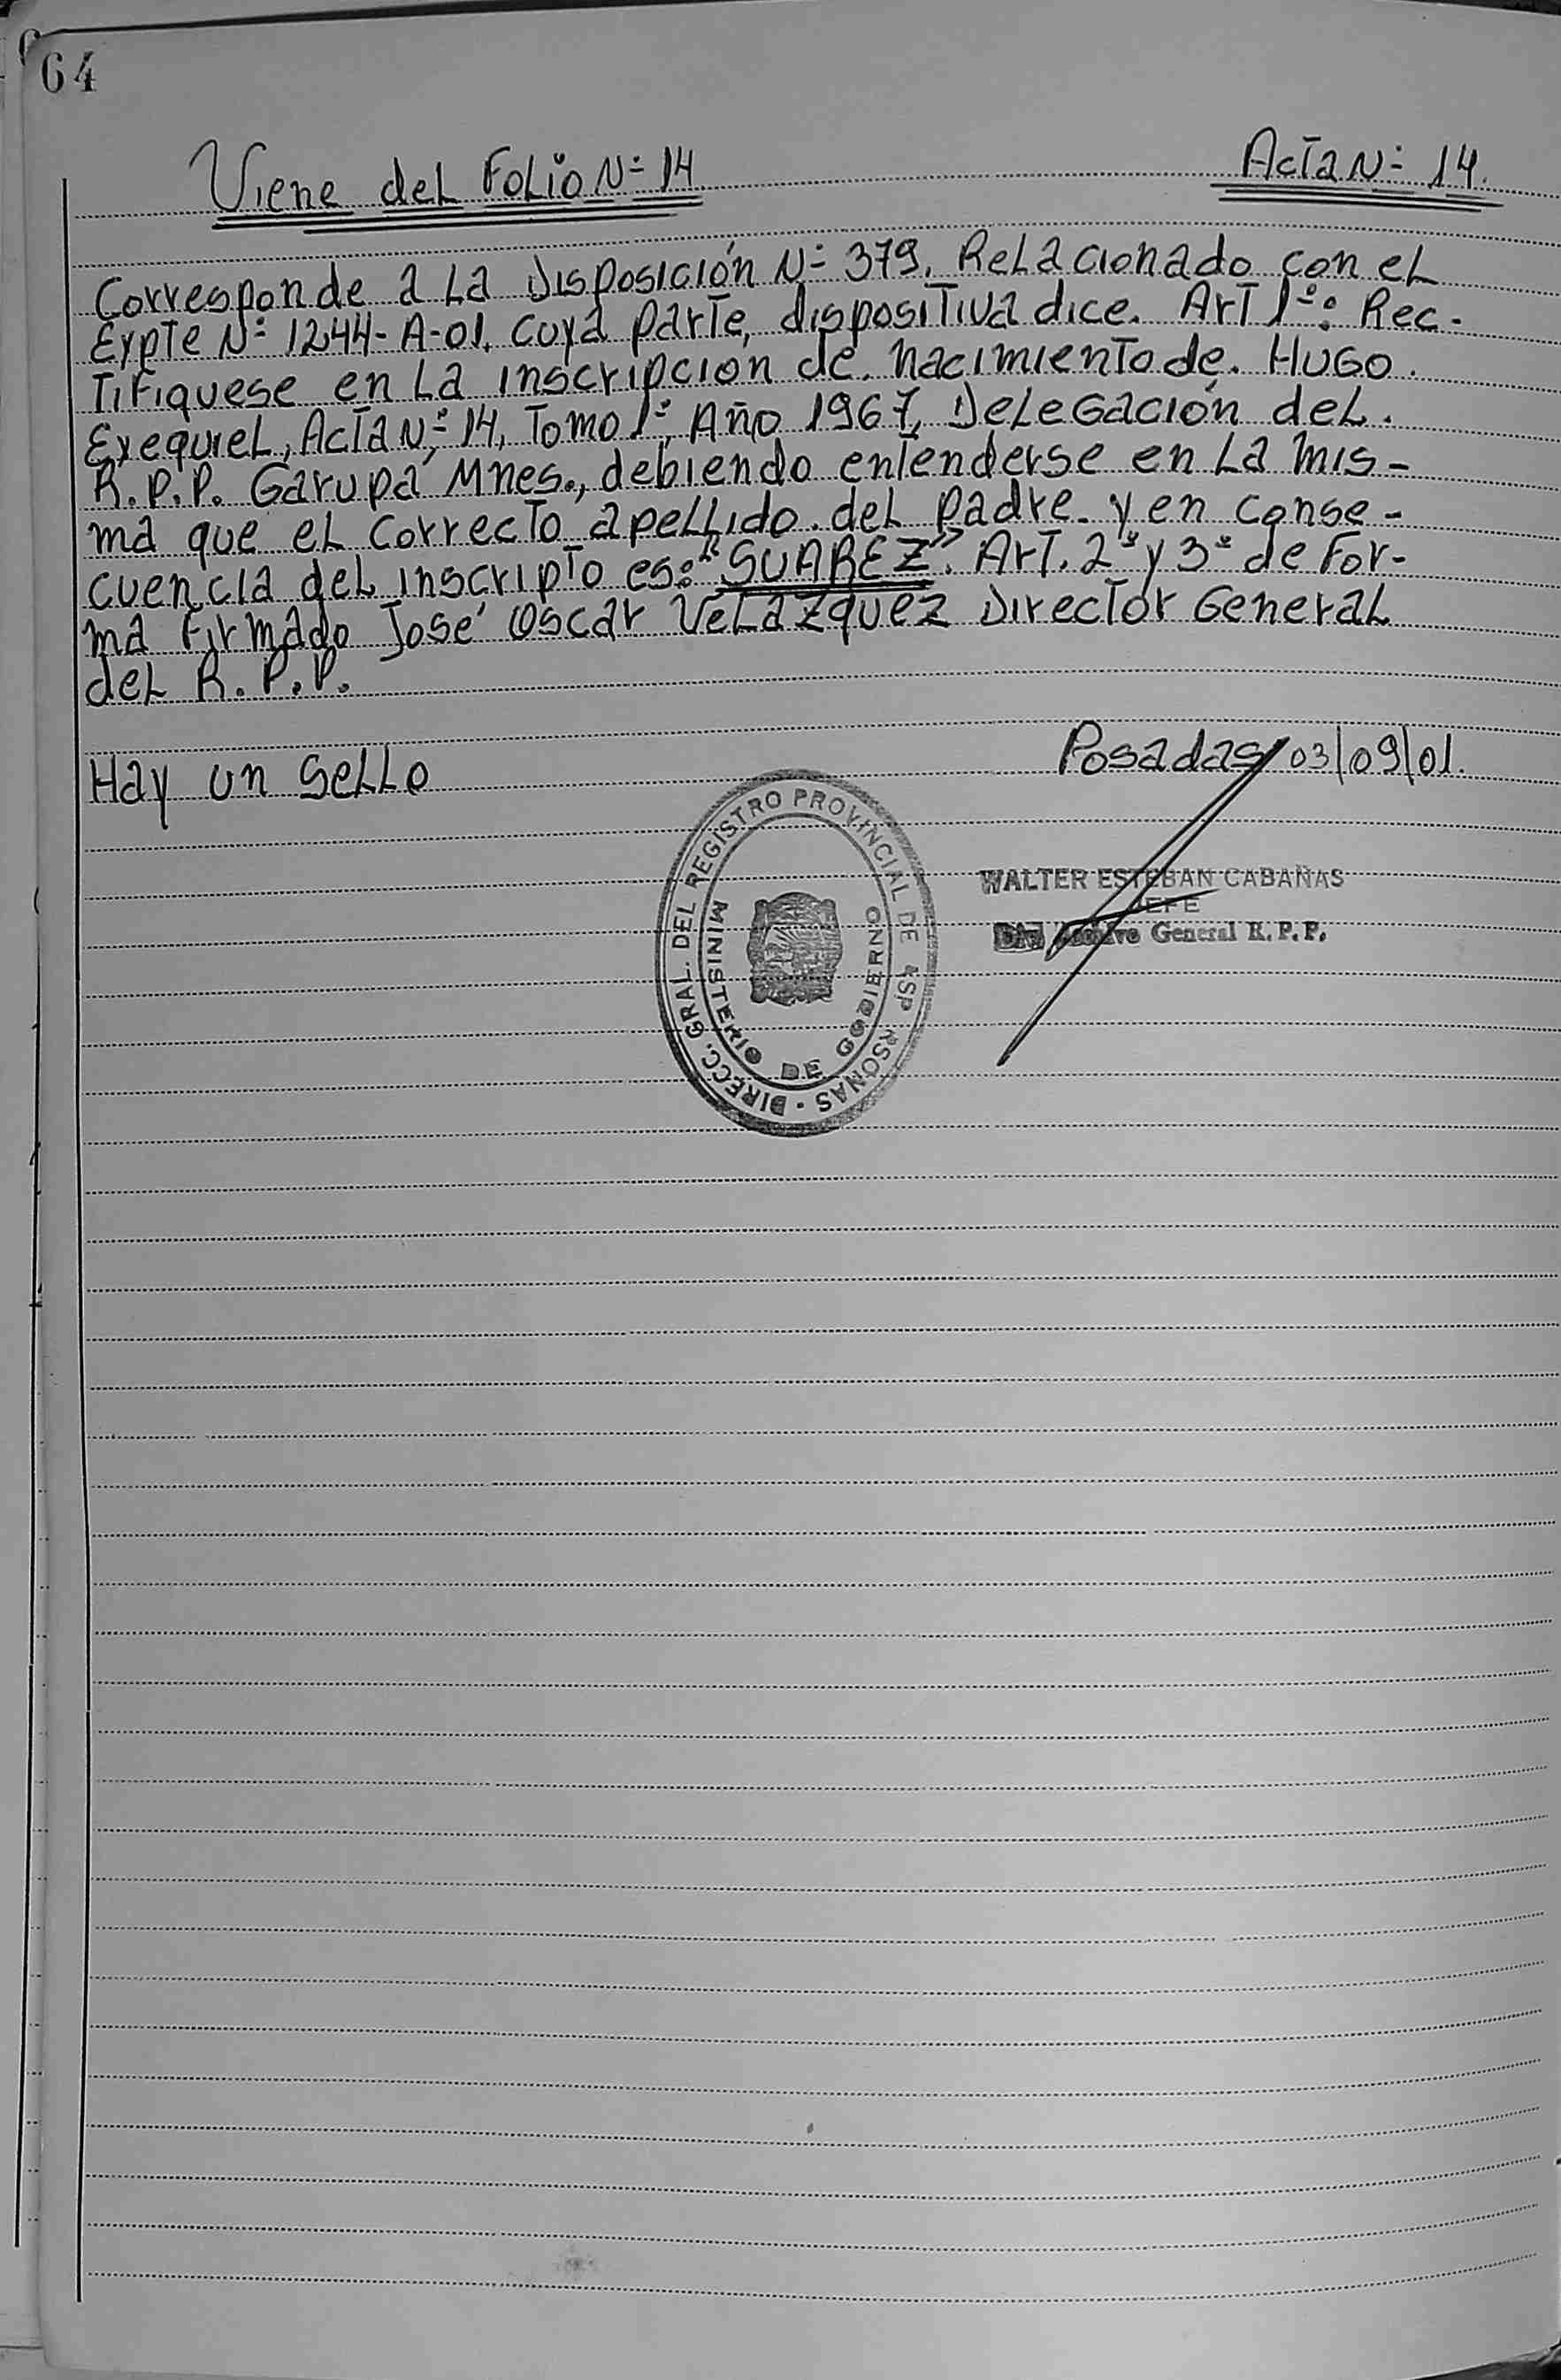 64
Viene del Folio Nº 14 Acta Nº 14.
Corresponde a La Disposición Nº 379. Relacionado con el
Expte Nº 1244-A-01. cuya parte, dispositiva dice. Art 1º: Rec-
Tifiquese en La inscripcion de. nacimiento de. HUGO.
Exequiel, Acta Nº 14, Tomo 1º, Año 1967, Delegación del.
R.P.P. Garupá Mnes., debiendo entenderse en La mis-
ma que el correcto apellido. del padre. y en conse-
cuencia del inscripto es: "SUAREZ". Art. 2º y 3º de For-
ma Firmado José Oscar Velazquez Director General
del R.P.P.
Hay un Sello Posadas, 03/09/01.
DIRECC. GRAL. DEL REGISTRO PROVINCIAL DE PERSONAS
MINISTERIO DE GOBIERNO
WALTER ESTEBAN CABAÑAS
JEFE
Archivo General R.P.P.